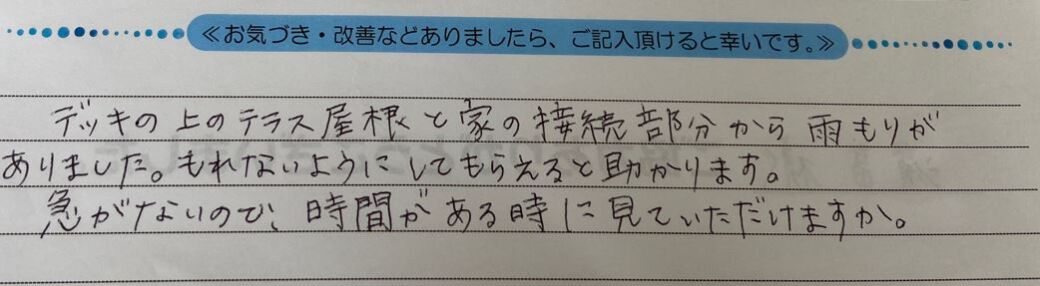 ≪お気づき・改善などありましたら、ご記入頂けると幸いです。≫
デッキの上のテラス屋根と家の接続部分から雨もりが
ありました。もれないようにしてもらえると助かります。
急がないので、時間がある時に見ていただけますか。